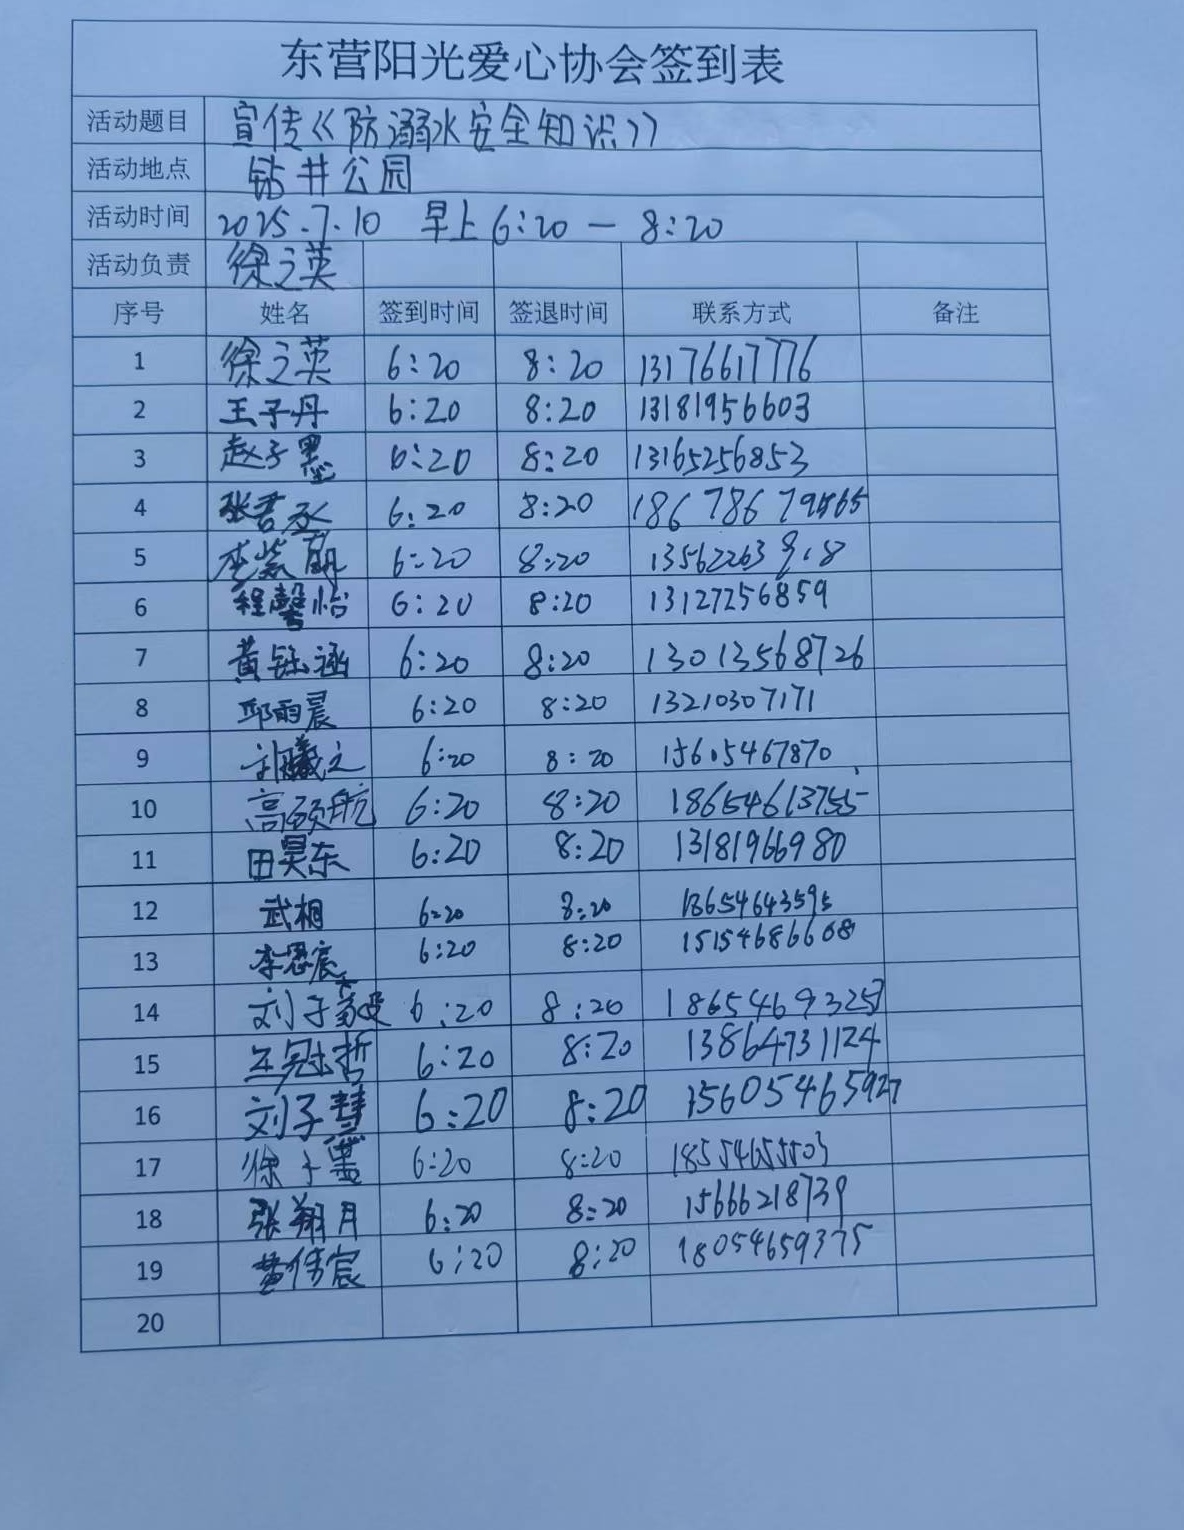 东营阳光爱心协会签到表
活动题目 宣传《防溺水安全知识》
活动地点 钻井公园
活动时间 2025.7.10 早上6:20—8:20
活动负责 徐之英
序号 姓名 签到时间 签退时间 联系方式 备注
1 徐之英 6:20 8:20 13176617776
2 王子丹 6:20 8:20 13181956603
3 赵子墨 6:20 8:20 13165256853
4 张君丞 6:20 8:20
5 李紫萌 6:20 8:20
6 程馨怡 6:20 8:20 13127256859
7 黄钰涵 6:20 8:20 13013568726
8 邱雨晨 6:20 8:20 13210307171
9 刘曦之 6:20 8:20 15605467870
10 高硕航 6:20 8:20 18654613755
11 田昊东 6:20 8:20 13181966980
12 武相 6:20 8:20
13 李恩宸 6:20 8:20 15154686608
14 刘子 6:20 8:20
15 王冠哲 6:20 8:20 13864731124
16 刘子慧 6:20 8:20 15605465927
17 徐子墨 6:20 8:20 18554655503
18 张翔月 6:20 8:20 15666218739
19 黄伟宸 6:20 8:20 18054659375
20